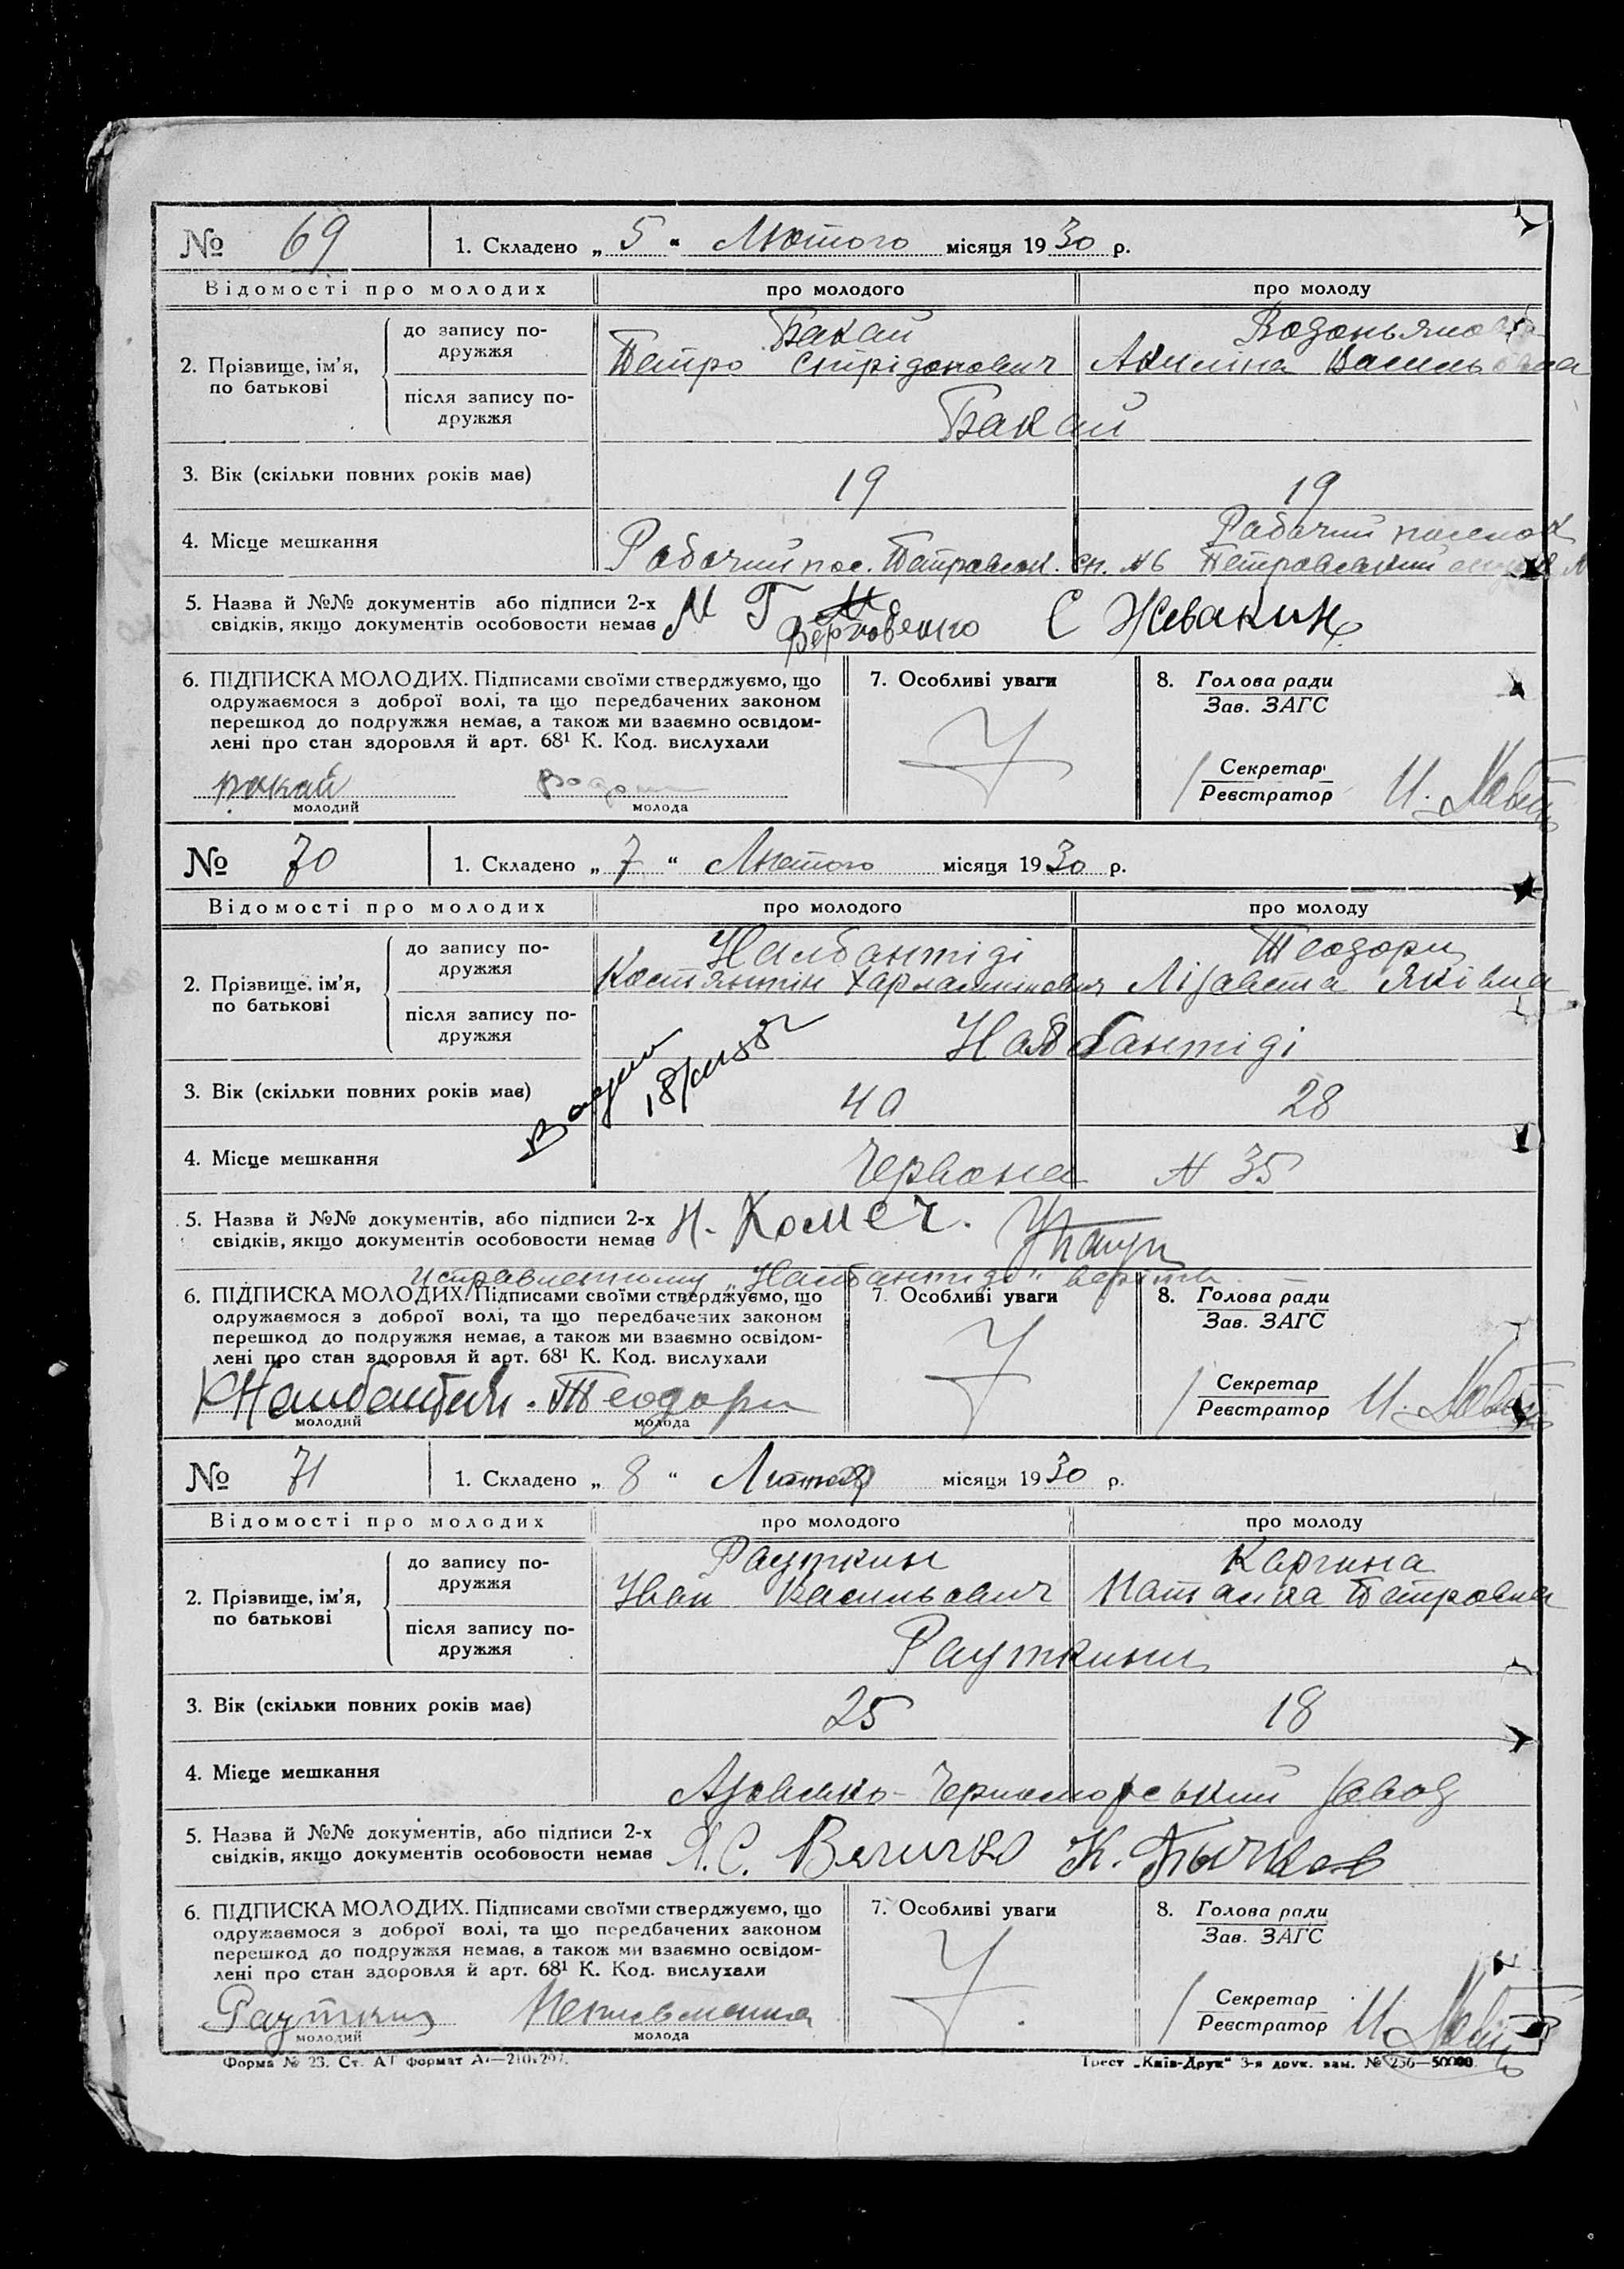 № 69 1. Складено „ 5 “ Лютого місяця 1930 р.
Відомості про молодих про молодого про молоду
2. Прізвище, ім'я, по батькові
до запису подружжя Бакай
Петро Спірідонович Акиліна Васильовна
після запису подружжя Бакай
3. Вік (скільки повних років має) 19 19
4. Місце мешкання Рабочий пос. Петравськ. № 6 Рабочий Петравський
5. Назва й №№ документів або підписи 2-х
свідків, якщо документів особовости немає С Жевакин
6. ПІДПИСКА МОЛОДИХ. Підписами своїми стверджуємо, що
одружаємося з доброї волі, та що передбачених законом
перешкод до подружжя немає, а також ми взаємно освідом-
лені про стан здоровля й арт. 68¹ К. Код. вислухали
молодий молода
7. Особливі уваги
8. Голова ради
Зав. ЗАГС
Секретар
Реєстратор
№ 70 1. Складено „ 7 “ Лютого місяця 1930 р.
Відомості про молодих про молодого про молоду
2. Прізвище, ім'я, по батькові
до запису подружжя Налбантіді Теодори
Костянтін Харлампиович Лізавета Яківна
після запису подружжя Налбантіді
3. Вік (скільки повних років має) 40 28
4. Місце мешкання Червона № 35
5. Назва й №№ документів, або підписи 2-х
свідків, якщо документів особовости немає Н. Комеч.
исправленному „Налбантиди“ верить
6. ПІДПИСКА МОЛОДИХ. Підписами своїми стверджуємо, що
одружаємося з доброї волі, та що передбачених законом
перешкод до подружжя немає, а також ми взаємно освідом-
лені про стан здоровля й арт. 68¹ К. Код. вислухали
Теодори
молодий молода
7. Особливі уваги
8. Голова ради
Зав. ЗАГС
Секретар
Реєстратор
№ 71 1. Складено „ 8 “ місяця 1930 р.
Відомості про молодих про молодого про молоду
2. Прізвище, ім'я, по батькові
до запису подружжя Рауткин Каргина
Іван Васильович Наталка Петровна
після запису подружжя Рауткины
3. Вік (скільки повних років має) 25 18
4. Місце мешкання Азовсько-Черноморський завод
5. Назва й №№ документів, або підписи 2-х
свідків, якщо документів особовости немає Величко К. Бычков
6. ПІДПИСКА МОЛОДИХ. Підписами своїми стверджуємо, що
одружаємося з доброї волі, та що передбачених законом
перешкод до подружжя немає, а також ми взаємно освідом-
лені про стан здоровля й арт. 68¹ К. Код. вислухали
Рауткин Неписьменна
молодий молода
7. Особливі уваги
8. Голова ради
Зав. ЗАГС
Секретар
Реєстратор
Форма № 23. Ст. АГ формат А4—210х297.
Трест „Київ-Друк“ 3-я друк. зам. № 256—50000